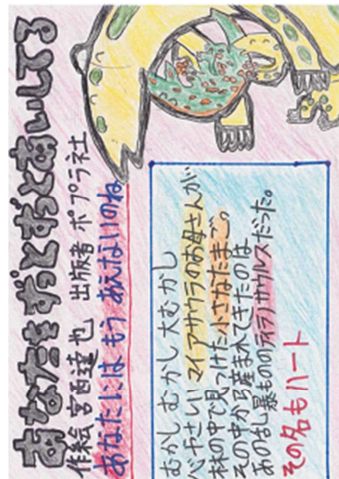 あなたをずっとずっとあいしてる
作絵 宮西達也 出版者 ポプラ社
あなたには もう あえないのね
むかしむかし 大むかし
心やさしい マイアサウラのお母さんが
林の中で見つけた小さなたまご。
その中から産まれてきたのは
あのあばれ暴もののティラノサウルスだった。
その名もハート